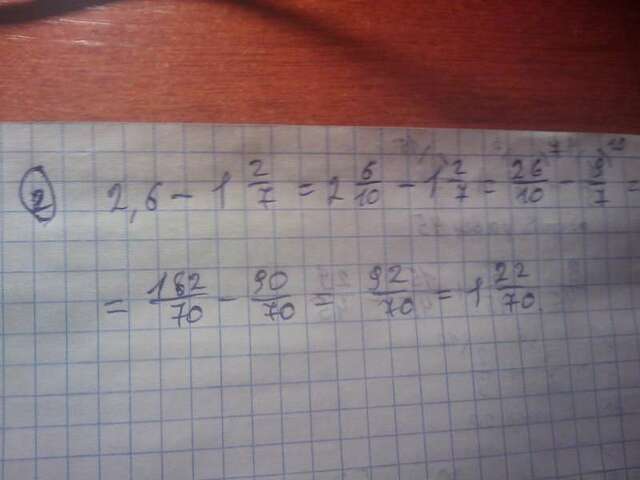 2) 2,6 - 1 2/7 = 2 6/10 - 1 2/7 = 26/10 - 9/7 =
= 182/70 - 90/70 = 92/70 = 1 22/70